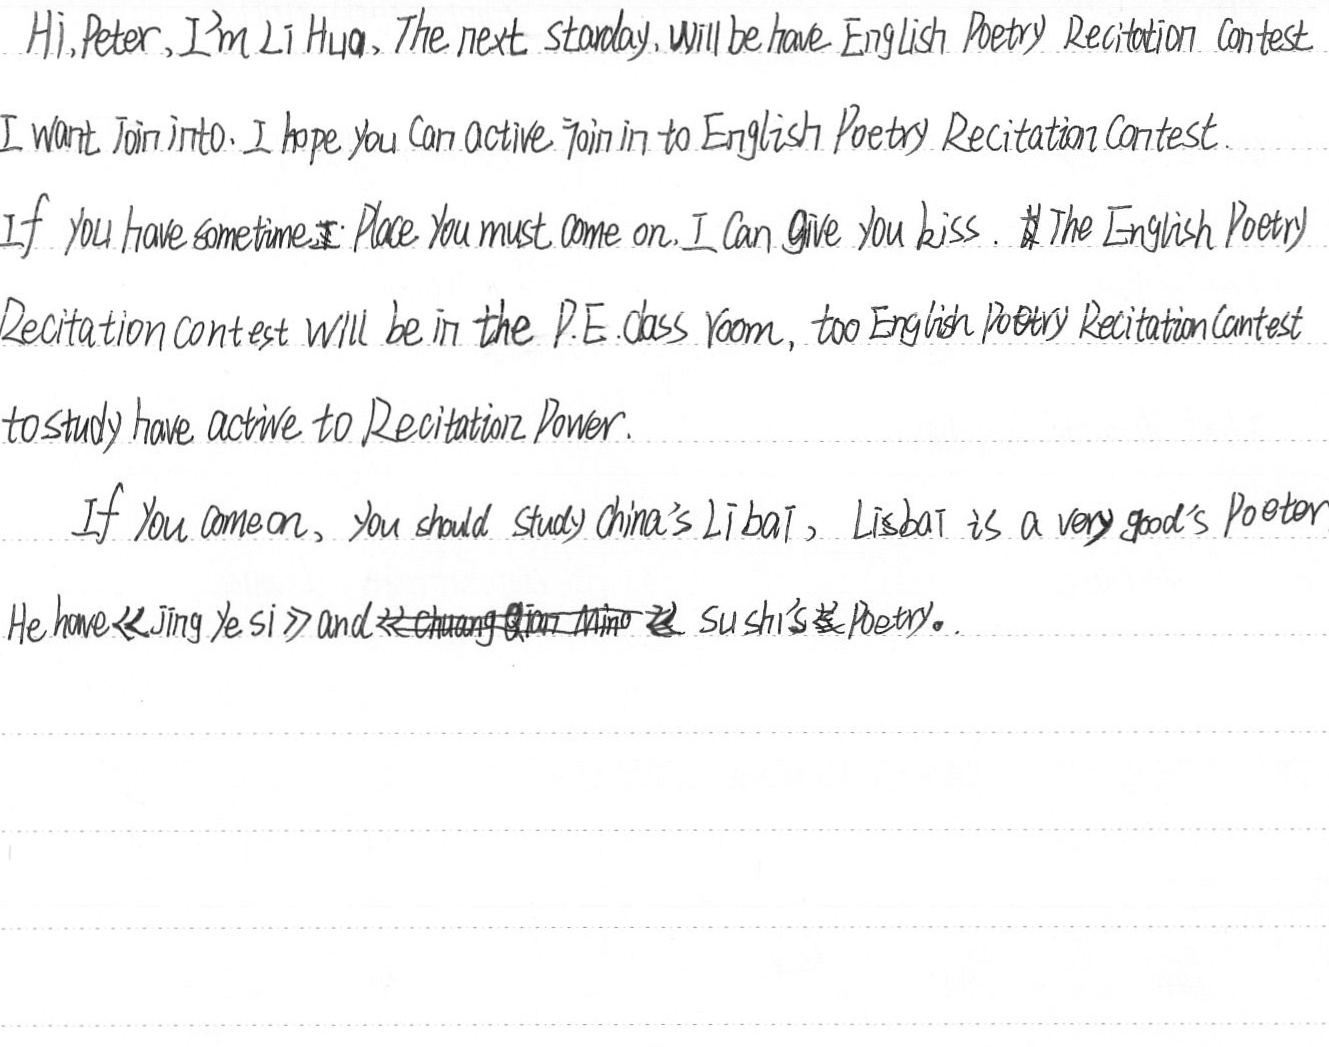 Hi, Peter, I'm Li Hua, The next starday, will be have English Poetry Recitation Contest
I want Join into. I hope you Can active join in to English Poetry Recitation Contest.
If you have sometime. Place you must come on, I Can give you kiss. The English Poetry
Recitation contest will be in the P.E. class room, too English Poetry Recitation Contest
to study have active to Recitation Power.
If you come on, you should study China's Libai, Lisbai is a very good's Poeter
He have 《Jing ye si》 and su shi's Poetry.